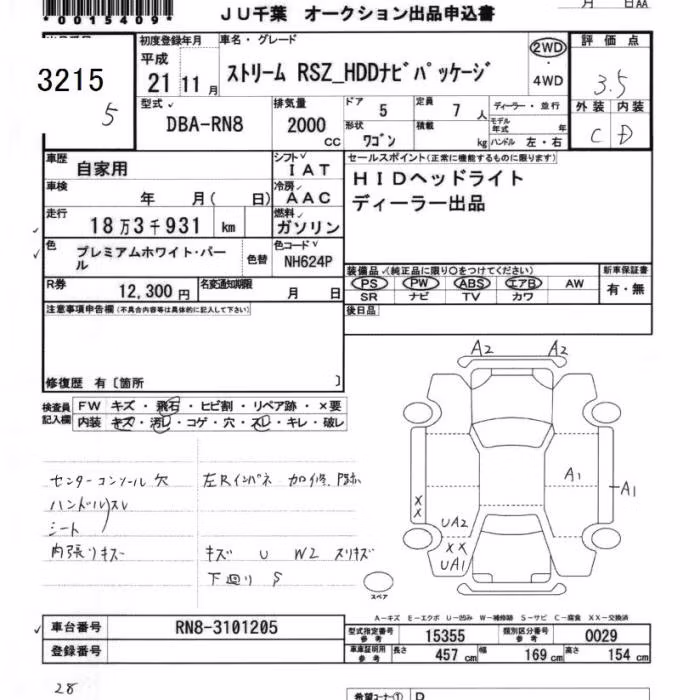 *0015409*
月 日AA
JU千葉 オークション出品申込書
3215
5
初度登録年月
平成
21 11 月
車名・グレード
ストリーム RSZ_HDDナビパッケージ
2WD
・
4WD
評価点
3.5
外装 内装
C D
型式
DBA-RN8
排気量
2000
CC
ドア 5
定員 7 人
形状 ワゴン
積載 kg
ディーラー・並行
モデル年式 年
ハンドル 左・右
車歴
自家用
シフト
IAT
車検
年 月( 日)
冷房
AAC
走行
18万3千931 km
燃料
ガソリン
色
プレミアムホワイト・パール
色替
色コード
NH624P
R券
12,300 円
名変通知期限
月 日
セールスポイント(正常に機能するものに限ります)
HIDヘッドライト
ディーラー出品
装備品(純正品に限り○をつけてください)
PS PW ABS エアB AW
SR ナビ TV カワ
新車保証書
有・無
後日品
注意事項申告欄(不具合内容等は具体的に記入して下さい)
修復歴 有〔箇所 〕
検査員記入欄
FW キズ・飛石・ヒビ割・リペア跡・×要
内装 キズ・汚レ・コゲ・穴・スレ・キレ・破レ
センターコンソール 欠
ハンドル スレ
シート
内張りキズ
左Rインパネ 加修
キズ U W2 スリキズ
下廻り S
A2 A2
A1 A1
X
X
UA2
XX
UA1
スペア
A-キズ E-エクボ U-凹み W-補修跡 S-サビ C-腐食 XX-交換済
車台番号 RN8-3101205
登録番号
型式指定番号 参考 15355
類別区分番号 参考 0029
車庫証明用 参考 長さ 457 cm 幅 169 cm 高さ 154 cm
28
希望コーナー① D